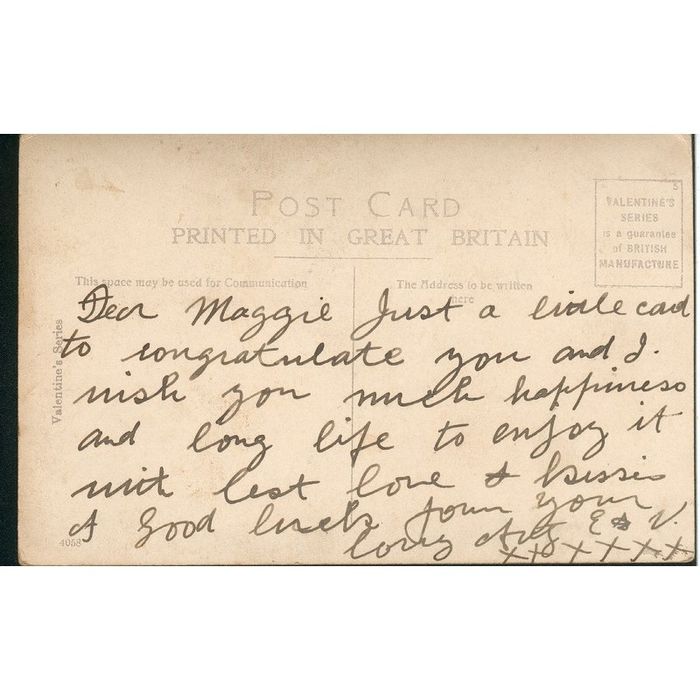 POST CARD
PRINTED IN GREAT BRITAIN
VALENTINE'S
SERIES
is a guarantee
of BRITISH
MANUFACTURE
5
This space may be used for Communication
The Address to be written
here
Valentine's Series
Dear Maggie Just a little card
to congratulate you and I.
wish you much happiness
and long life to enjoy it
with best love & kisses
& Good luck from your
loving E & V.
xxxxxxx
4058